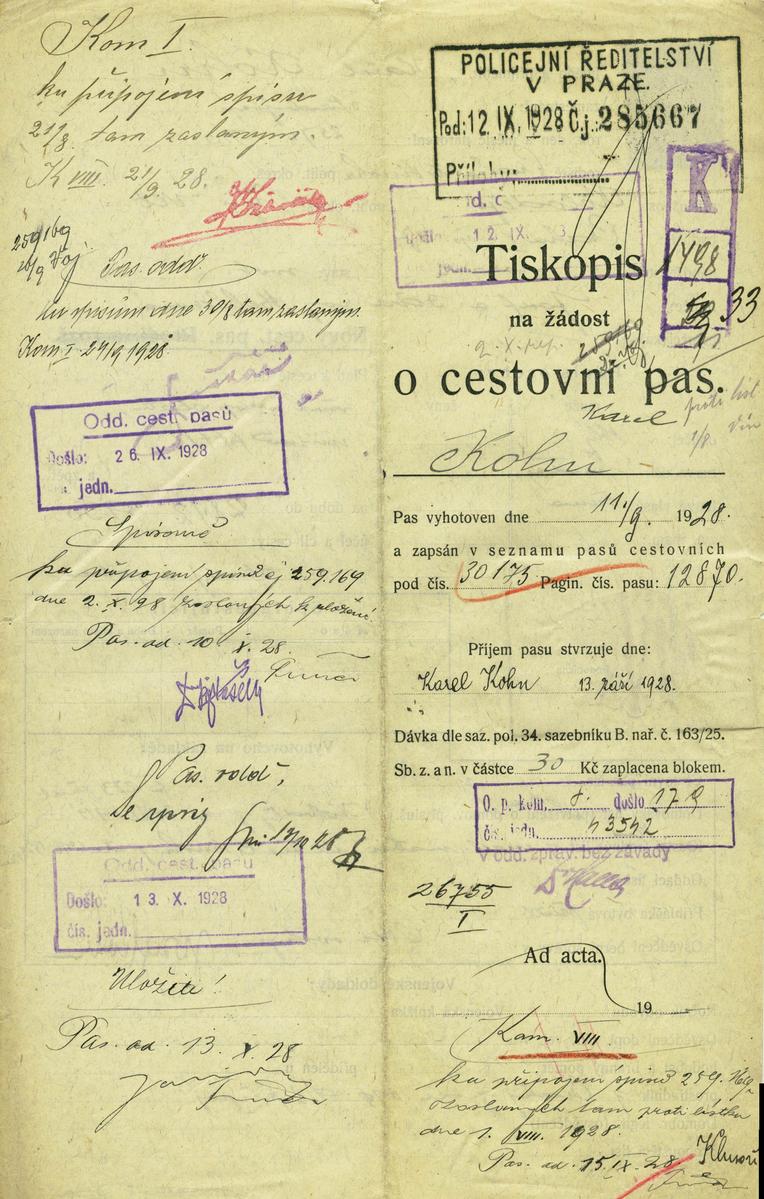 Kom I.
ku připojení spisu
21/8 tam zaslaným.
K VIII 21/9 28.
259169
26/9
Pas. odd.
ku spisům dne 30/8 tam zaslaným.
Kom I 24/9 1928
Odd. cest. pasů
Došlo: 26. IX. 1928
jedn.
Spisovně
ku připojení spisů čj 259.169
dne 2. X. 28 zaslaných k uložení
Pas. od. 10 X. 28.
Pas. odd.
Se spisy
Odd. cest. pasů
Došlo: 13. X. 1928
čís. jedn.
Uložiti!
Pas. od. 13. X. 28
POLICEJNÍ ŘEDITELSTVÍ
V PRAZE.
Pod: 12. IX. 1928 Čj. 285667
Přílohy:
K
1498
33
došlo 12. IX.
jedn.
Tiskopis
na žádost
o cestovní pas.
Karel
proti list
Kohn
Pas vyhotoven dne 11./9. 1928.
a zapsán v seznamu pasů cestovních
pod čís. 30175 Pagin. čís. pasu: 12870.
Příjem pasu stvrzuje dne:
Karel Kohn 13. září 1928.
Dávka dle saz. pol. 34. sazebníku B. nař. č. 163/25.
Sb. z. a n. v částce 30 Kč zaplacena blokem.
O. p. kom. došlo 17 9
čís. jedn. 43542
v odd. zprav. bez závady
26755
I
Ad acta.
19
Kom. VIII
ku připojení spisů 259.169
zaslaných tam proti lístku
dne 1. VIII. 1928.
Pas. od. 15. IX. 28